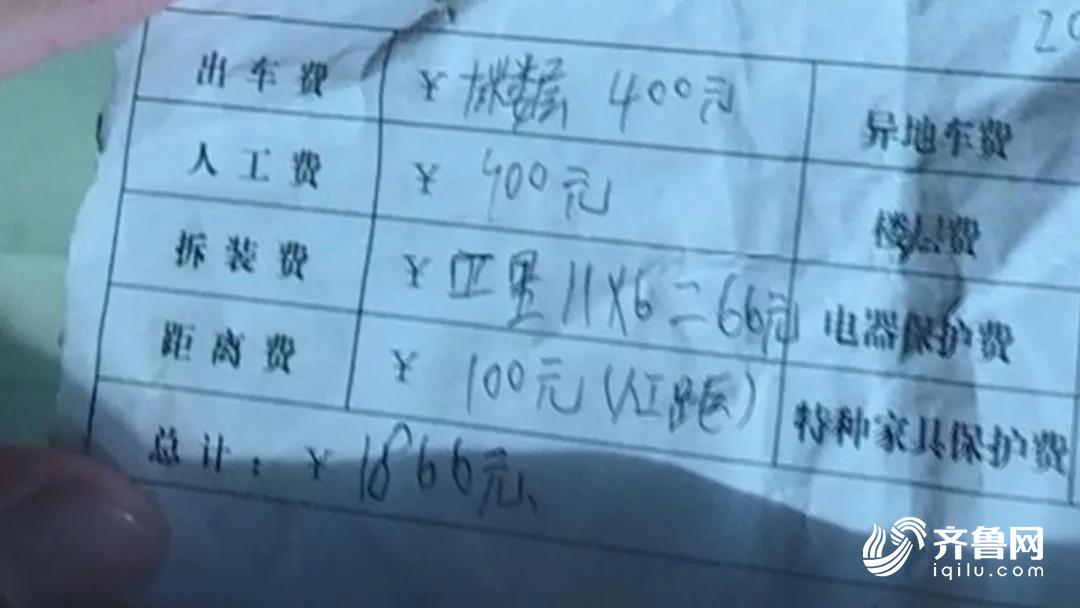 20
出车费 ¥ 400元 异地车费
人工费 ¥ 400元 楼层费
拆装费 ¥ 11×6=66元 电器保护费
距离费 ¥ 100元(人工距) 特种家具保护费
总计: ¥ 1866元
齐鲁网
iqilu.com